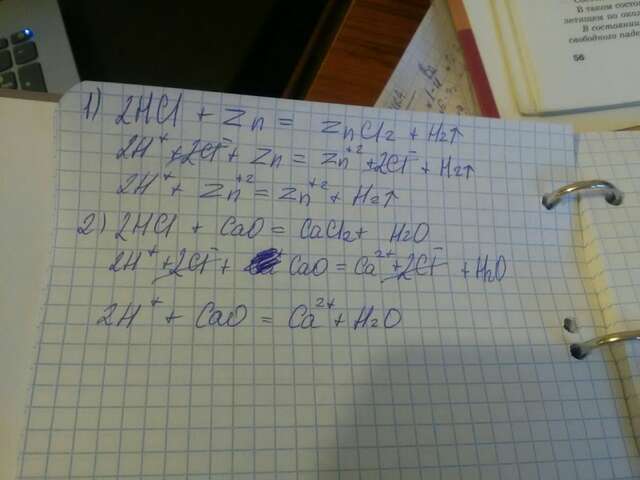 В таком состо
летящем по око
В состоянии
свободного паде
56
1) 2HCl + Zn = ZnCl2 + H2↑
2H⁺ + 2Cl⁻ + Zn = Zn⁺² + 2Cl⁻ + H2↑
2H⁺ + Zn⁺² = Zn⁺² + H2↑
2) 2HCl + CaO = CaCl2 + H2O
2H⁺ + 2Cl⁻ + CaO = Ca²⁺ + 2Cl⁻ + H2O
2H⁺ + CaO = Ca²⁺ + H2O